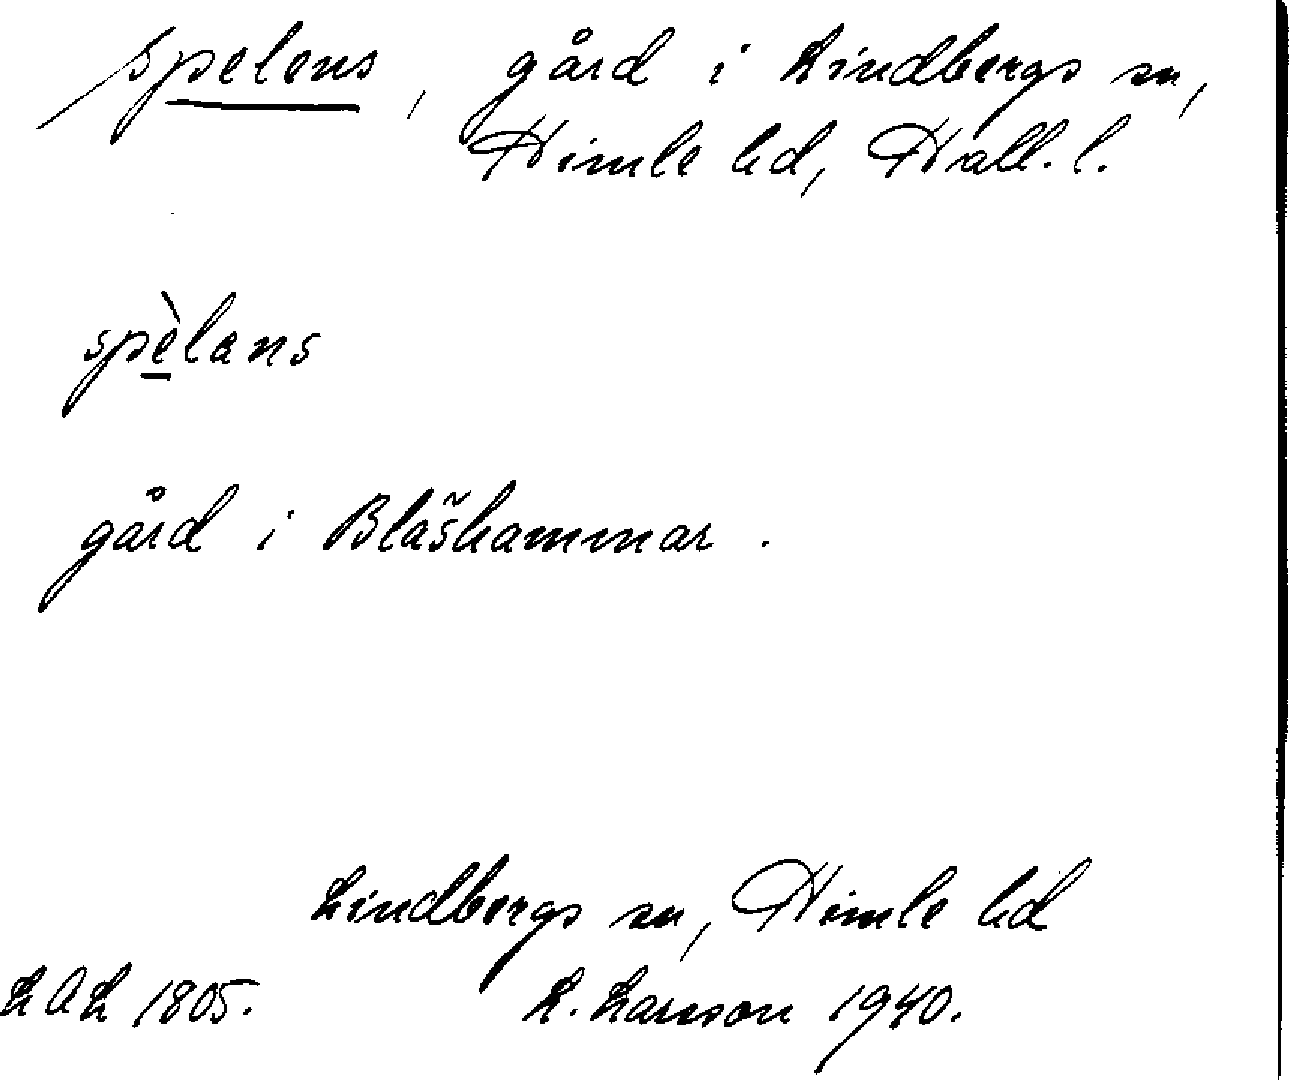 spelens, gård i Lindbergs sn,
Himle hd, Hall. l.
spèlans
gård i Blåšhammar.
Lindbergs sn, Himle hd
LAL 1805. L. Larsson 1940.